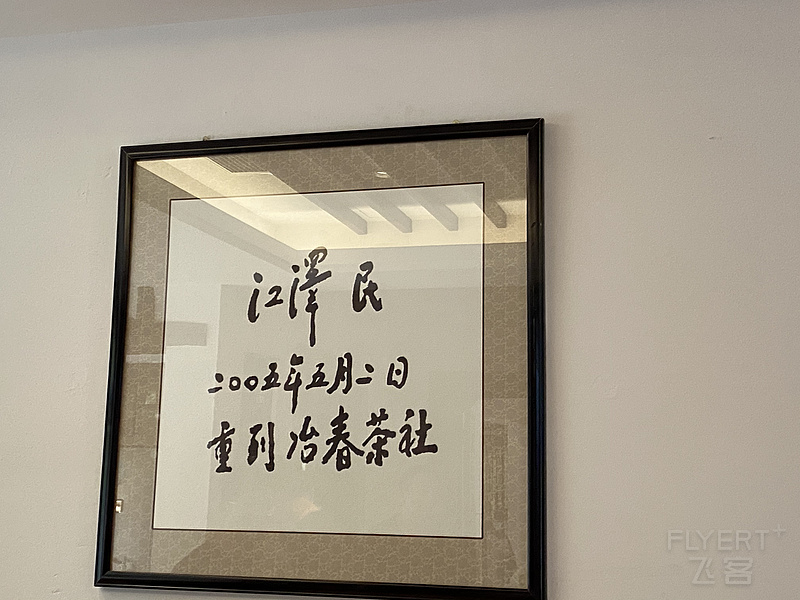 江澤民
二〇〇五年五月二日
重到冶春茶社
FLYERT+
飞客